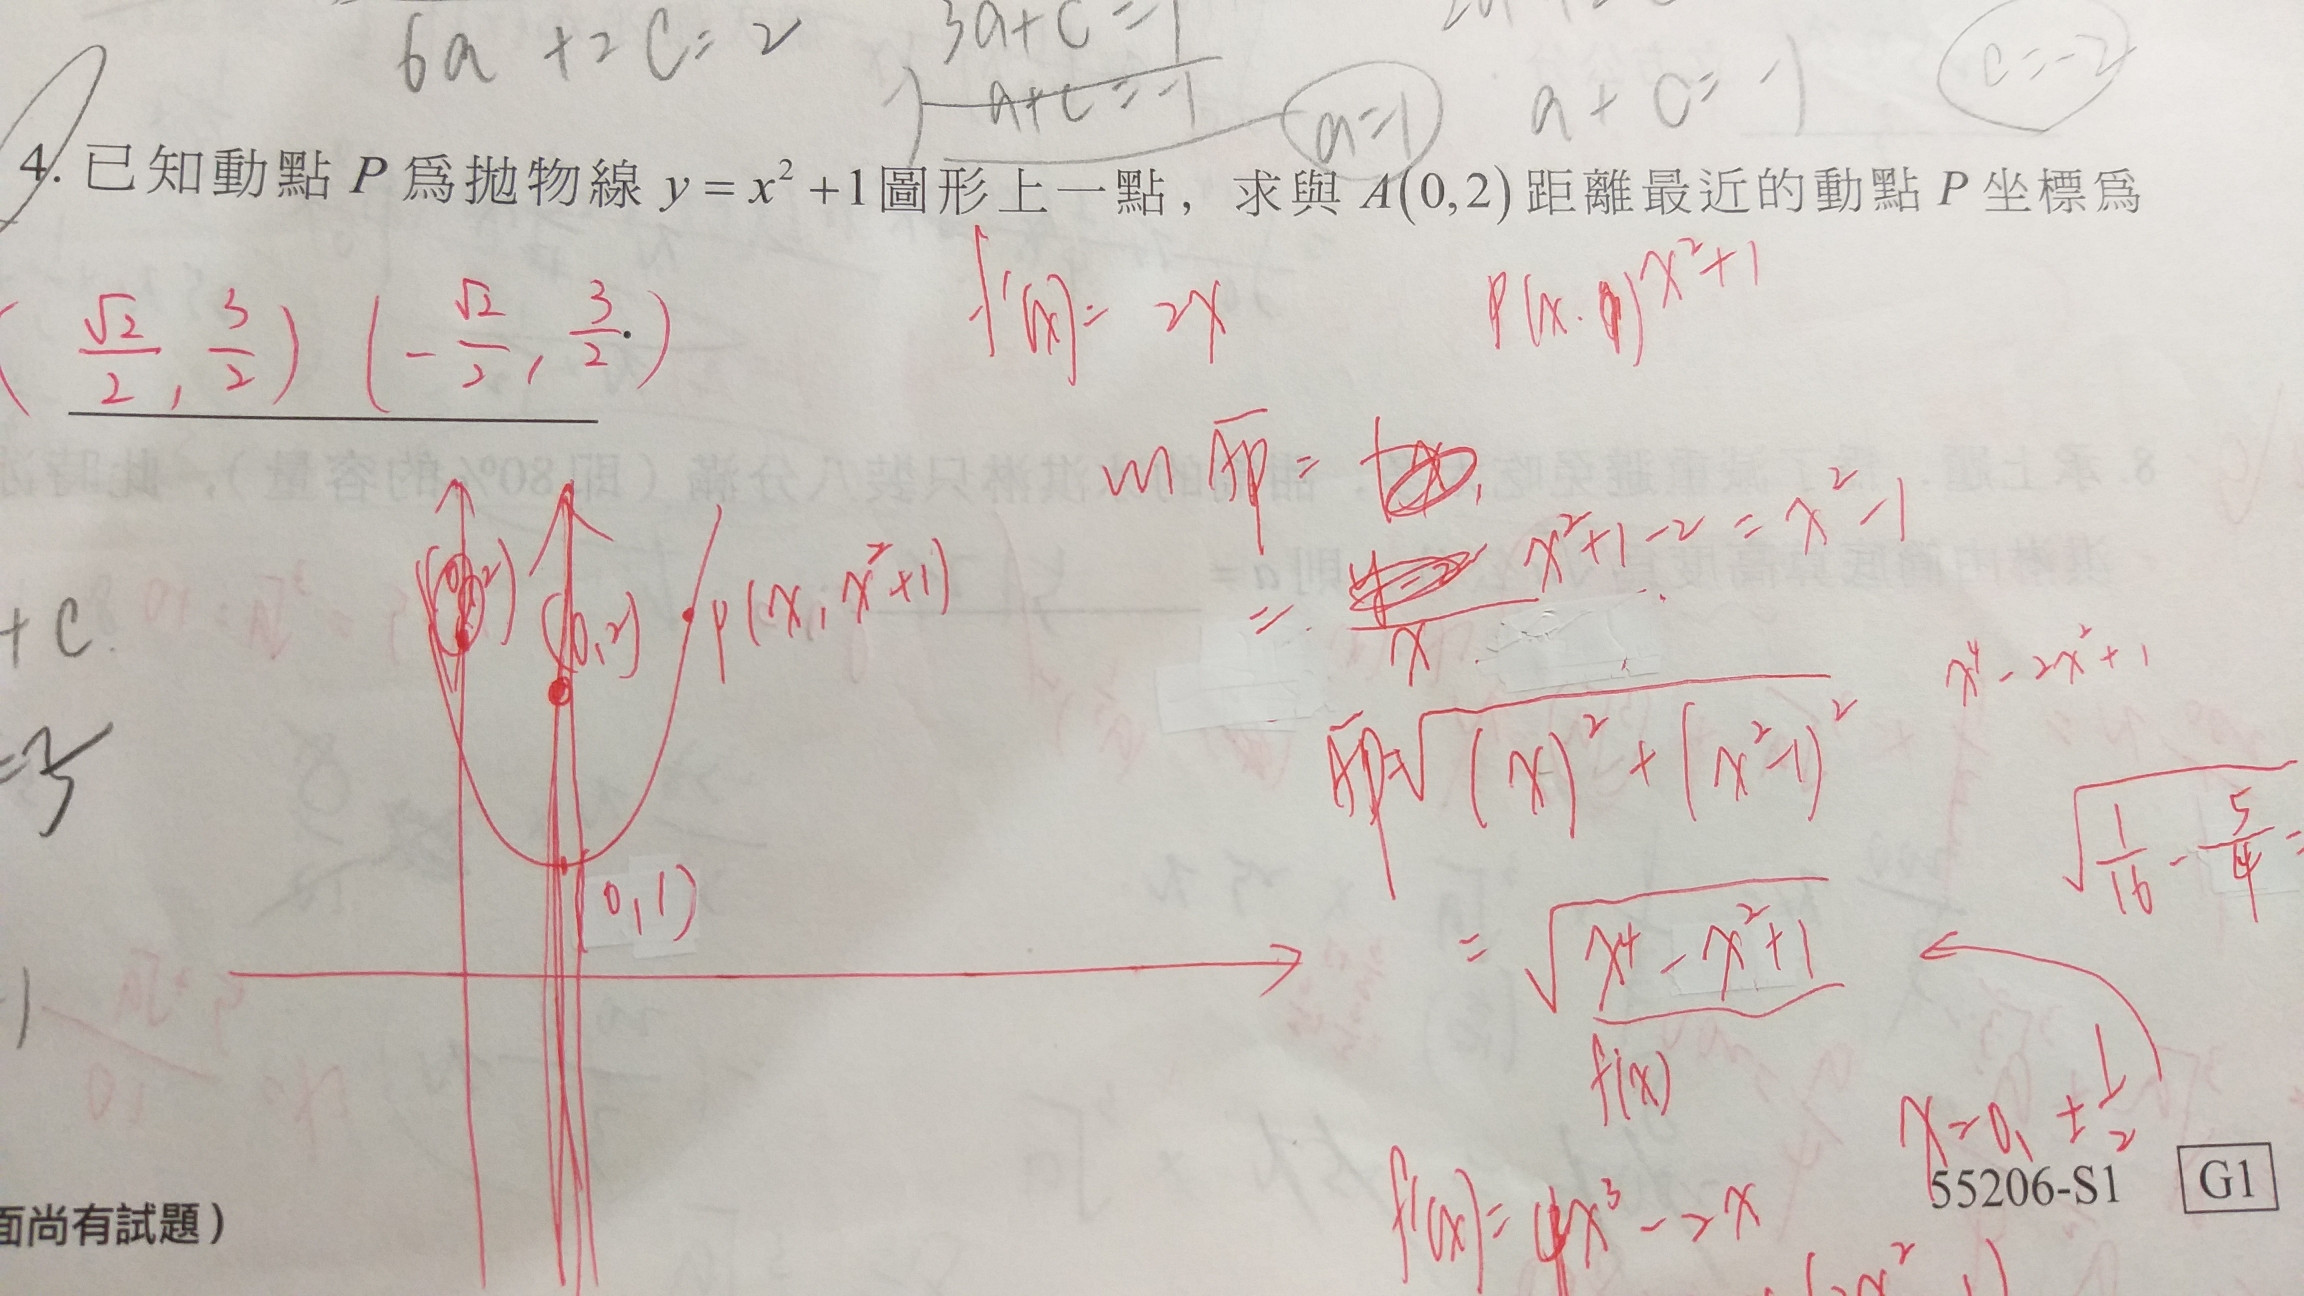 6a + 2c = 2
3a + c = 1
a + c = -1
a=1
a + c = -1
c=-2
4. 已知動點 P 爲拋物線 y = x² + 1 圖形上一點，求與 A(0,2) 距離最近的動點 P 坐標爲
(√2/2, 3/2) (-√2/2, 3/2)
.
f'(x) = 2x
P(x, ) x²+1
m AP =
= x²+1-2 / x = x²-1
(0,2)
P(x, x²+1)
+ C
x⁴ - 2x² + 1
AP = √((x)² + (x²-1)²)
√(1/16 - 5/4 =
(0,1)
= √(x⁴ - x² + 1)
f(x)
x = 0, ± 1/2
f'(x) = 4x³ - 2x
55206-S1 G1
面尚有試題）